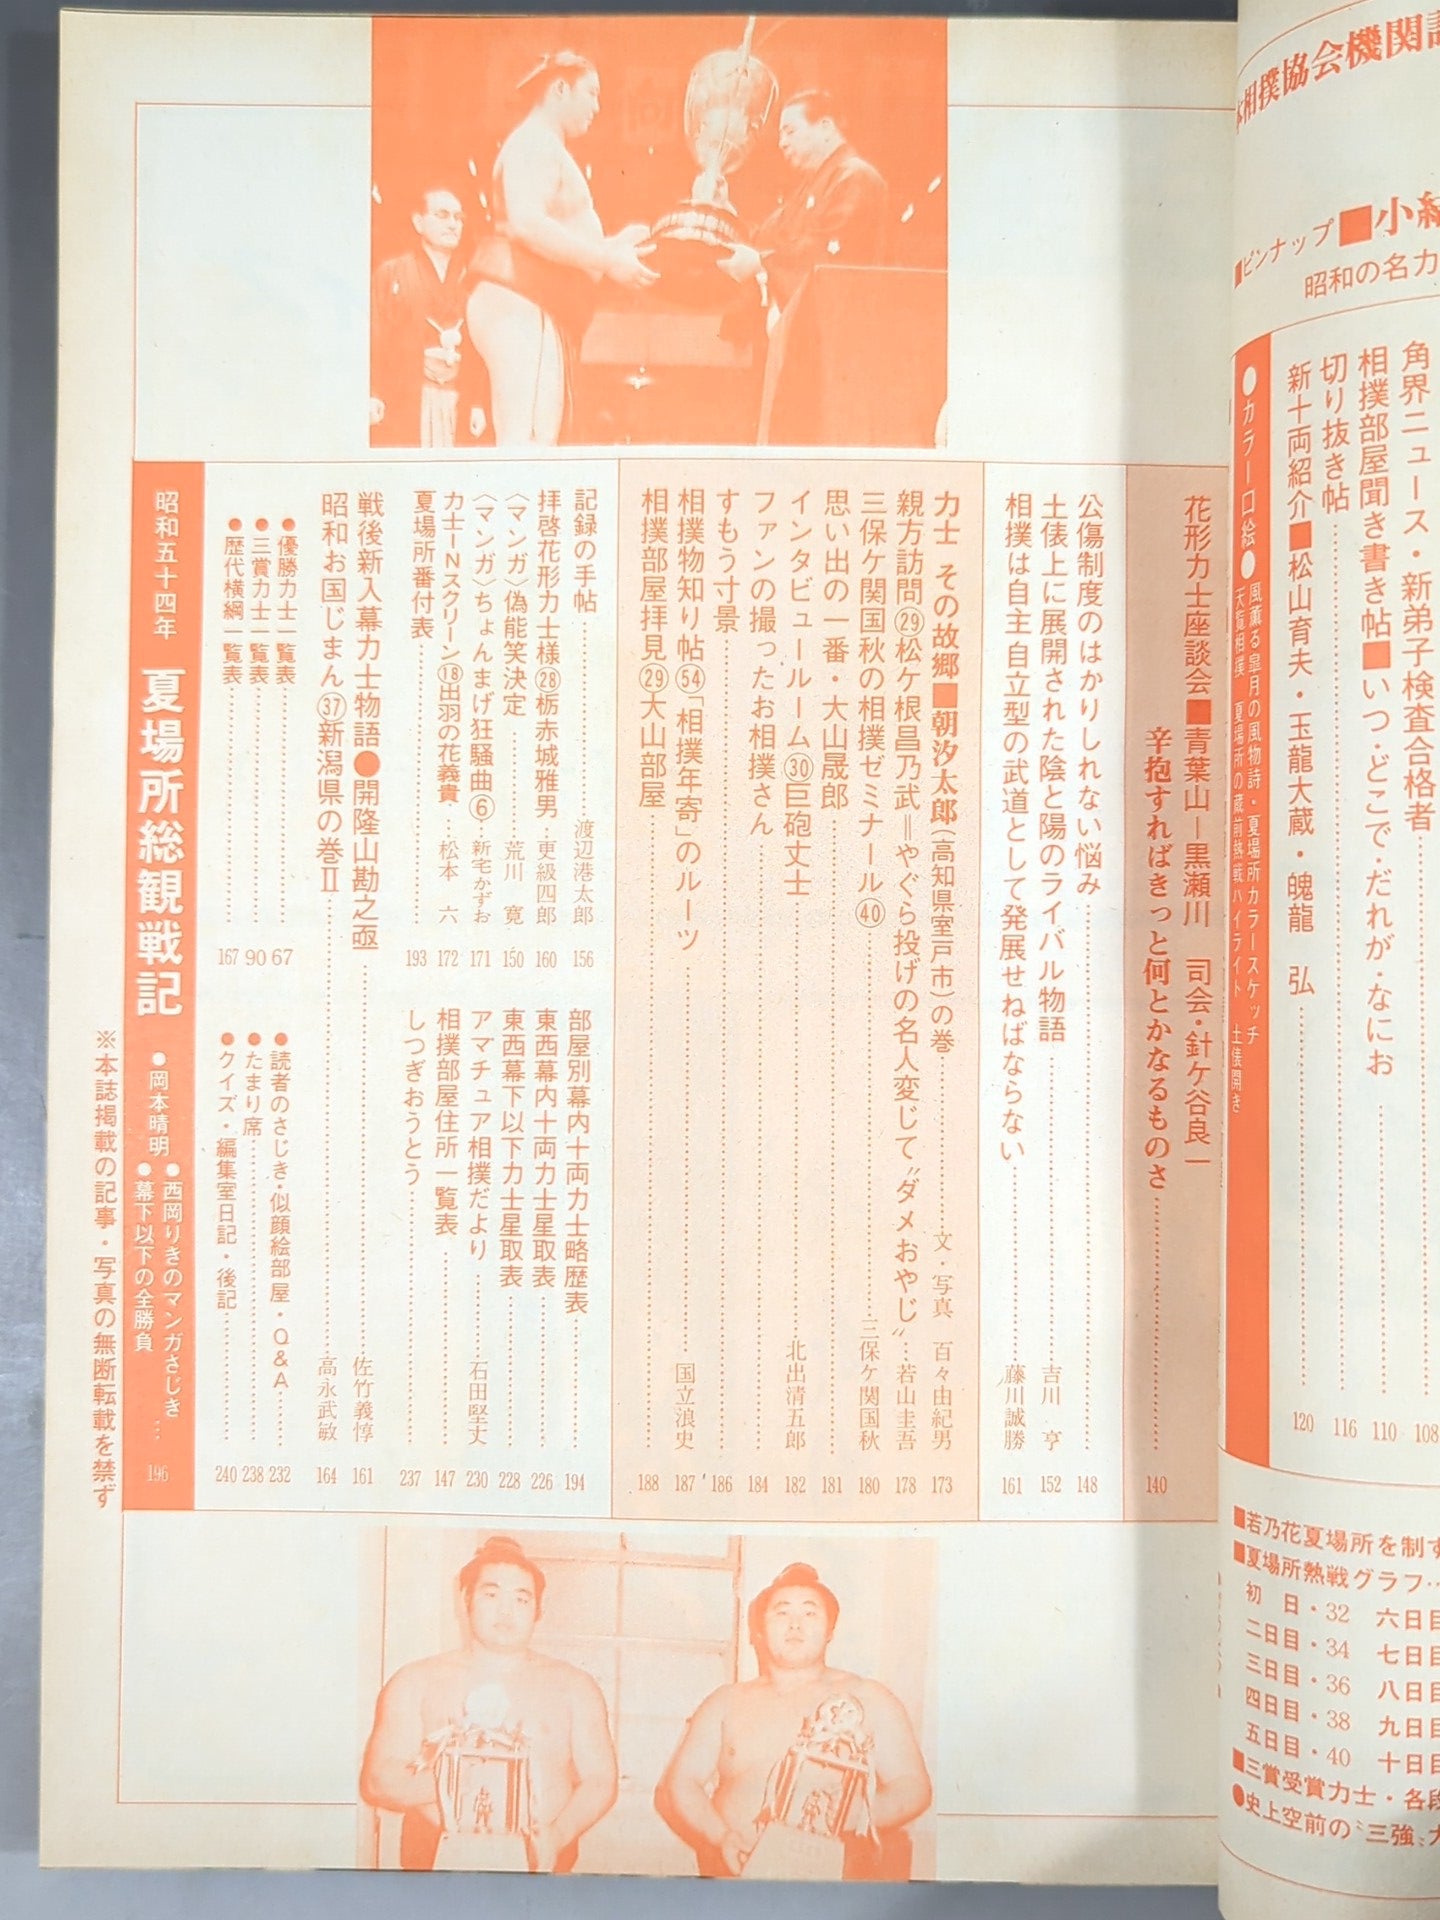 本相撲協会機関
ピンナップ■小
昭和の名力
角界ニュース・新弟子検査合格者
108
相撲部屋聞き書き帖■いつ・どこで・だれが・なにお
110
切り抜き帖
116
新十両紹介■松山育夫・玉龍大蔵・魄龍　弘
120
●カラー口絵●
風薫る皐月の風物詩・夏場所カラースケッチ
天覧相撲　夏場所の蔵前熱戦ハイライト　土俵開き
■若乃花夏場所を制す
■夏場所熱戦グラフ
初　日・32　六日目
二日目・34　七日目
三日目・36　八日目
四日目・38　九日目
五日目・40　十日目
■三賞受賞力士・各段
●史上空前の〝三強〟大
花形力士座談会■青葉山―黒瀬川　司会・針ケ谷良一
辛抱すればきっと何とかなるものさ
140
公傷制度のはかりしれない悩み
148
土俵上に展開された陰と陽のライバル物語
吉川　亨
152
相撲は自主自立型の武道として発展せねばならない
藤川誠勝
161
力士　その故郷■朝汐太郎(高知県室戸市)の巻
文・写真　百々由紀男
173
親方訪問㉙松ケ根昌乃武＝やぐら投げの名人変じて〝ダメおやじ〟
若山圭吾
178
三保ケ関国秋の相撲ゼミナール㊵
三保ケ関国秋
180
思い出の一番・大山晟郎
181
インタビュールーム㉚巨砲丈士
北出清五郎
182
ファンの撮ったお相撲さん
184
すもう寸景
186
相撲物知り帖㊴「相撲年寄」のルーツ
国立浪史
187
相撲部屋拝見㉙大山部屋
188
記録の手帖
渡辺港太郎
156
拝啓花形力士様㉘栃赤城雅男
更級四郎
160
〈マンガ〉偽能笑決定
荒川　寛
150
〈マンガ〉ちょんまげ狂騒曲⑥
新宅かずお
171
力士―Nスクリーン⑱出羽の花義貴
松本　六
172
夏場所番付表
193
部屋別幕内十両力士略歴表
194
東西幕内十両力士星取表
226
東西幕下以下力士星取表
228
アマチュア相撲だより
石田堅丈
230
相撲部屋住所一覧表
147
しつぎおうとう
237
戦後新入幕力士物語●開隆山勘之亟
佐竹義惇
161
昭和お国じまん㊲新潟県の巻Ⅱ
高永武敏
164
●優勝力士一覧表
67
●三賞力士一覧表
90
●歴代横綱一覧表
167
●読者のさじき・似顔絵部屋・Q&A
232
●たまり席
238
●クイズ・編集室日記・後記
240
昭和五十四年　夏場所総観戦記
●岡本晴明
●西岡りきのマンガさじき
●幕下以下の全勝負
196
※本誌掲載の記事・写真の無断転載を禁ず